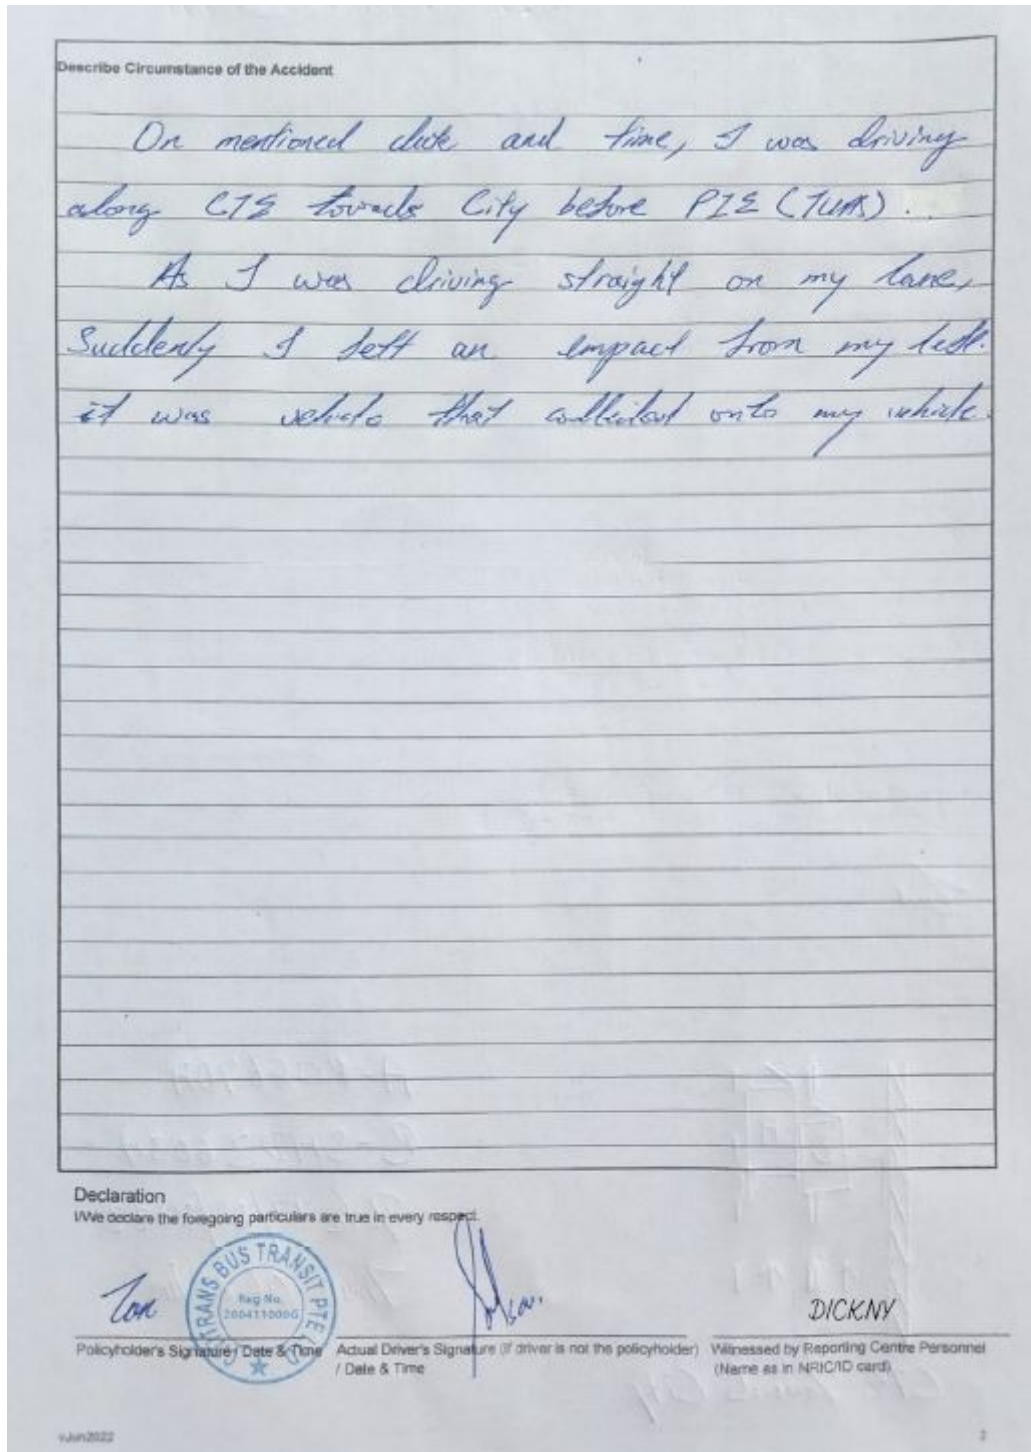 Describe Circumstance of the Accident
On mentioned date and time, I was driving
along CTE towards City before PIE (TUAS).
As I was driving straight on my lane,
Suddenly I felt an impact from my left.
it was vehicle that collided onto my vehicle.
Declaration
I/We declare the foregoing particulars are true in every respect.
TRANS BUS TRANSIT PTE
Reg No.
Tan
DICKNY
Policyholder's Signature / Date & Time
Actual Driver's Signature (if driver is not the policyholder)
/ Date & Time
Witnessed by Reporting Centre Personnel
(Name as in NRIC/ID card)
vJun2022
2